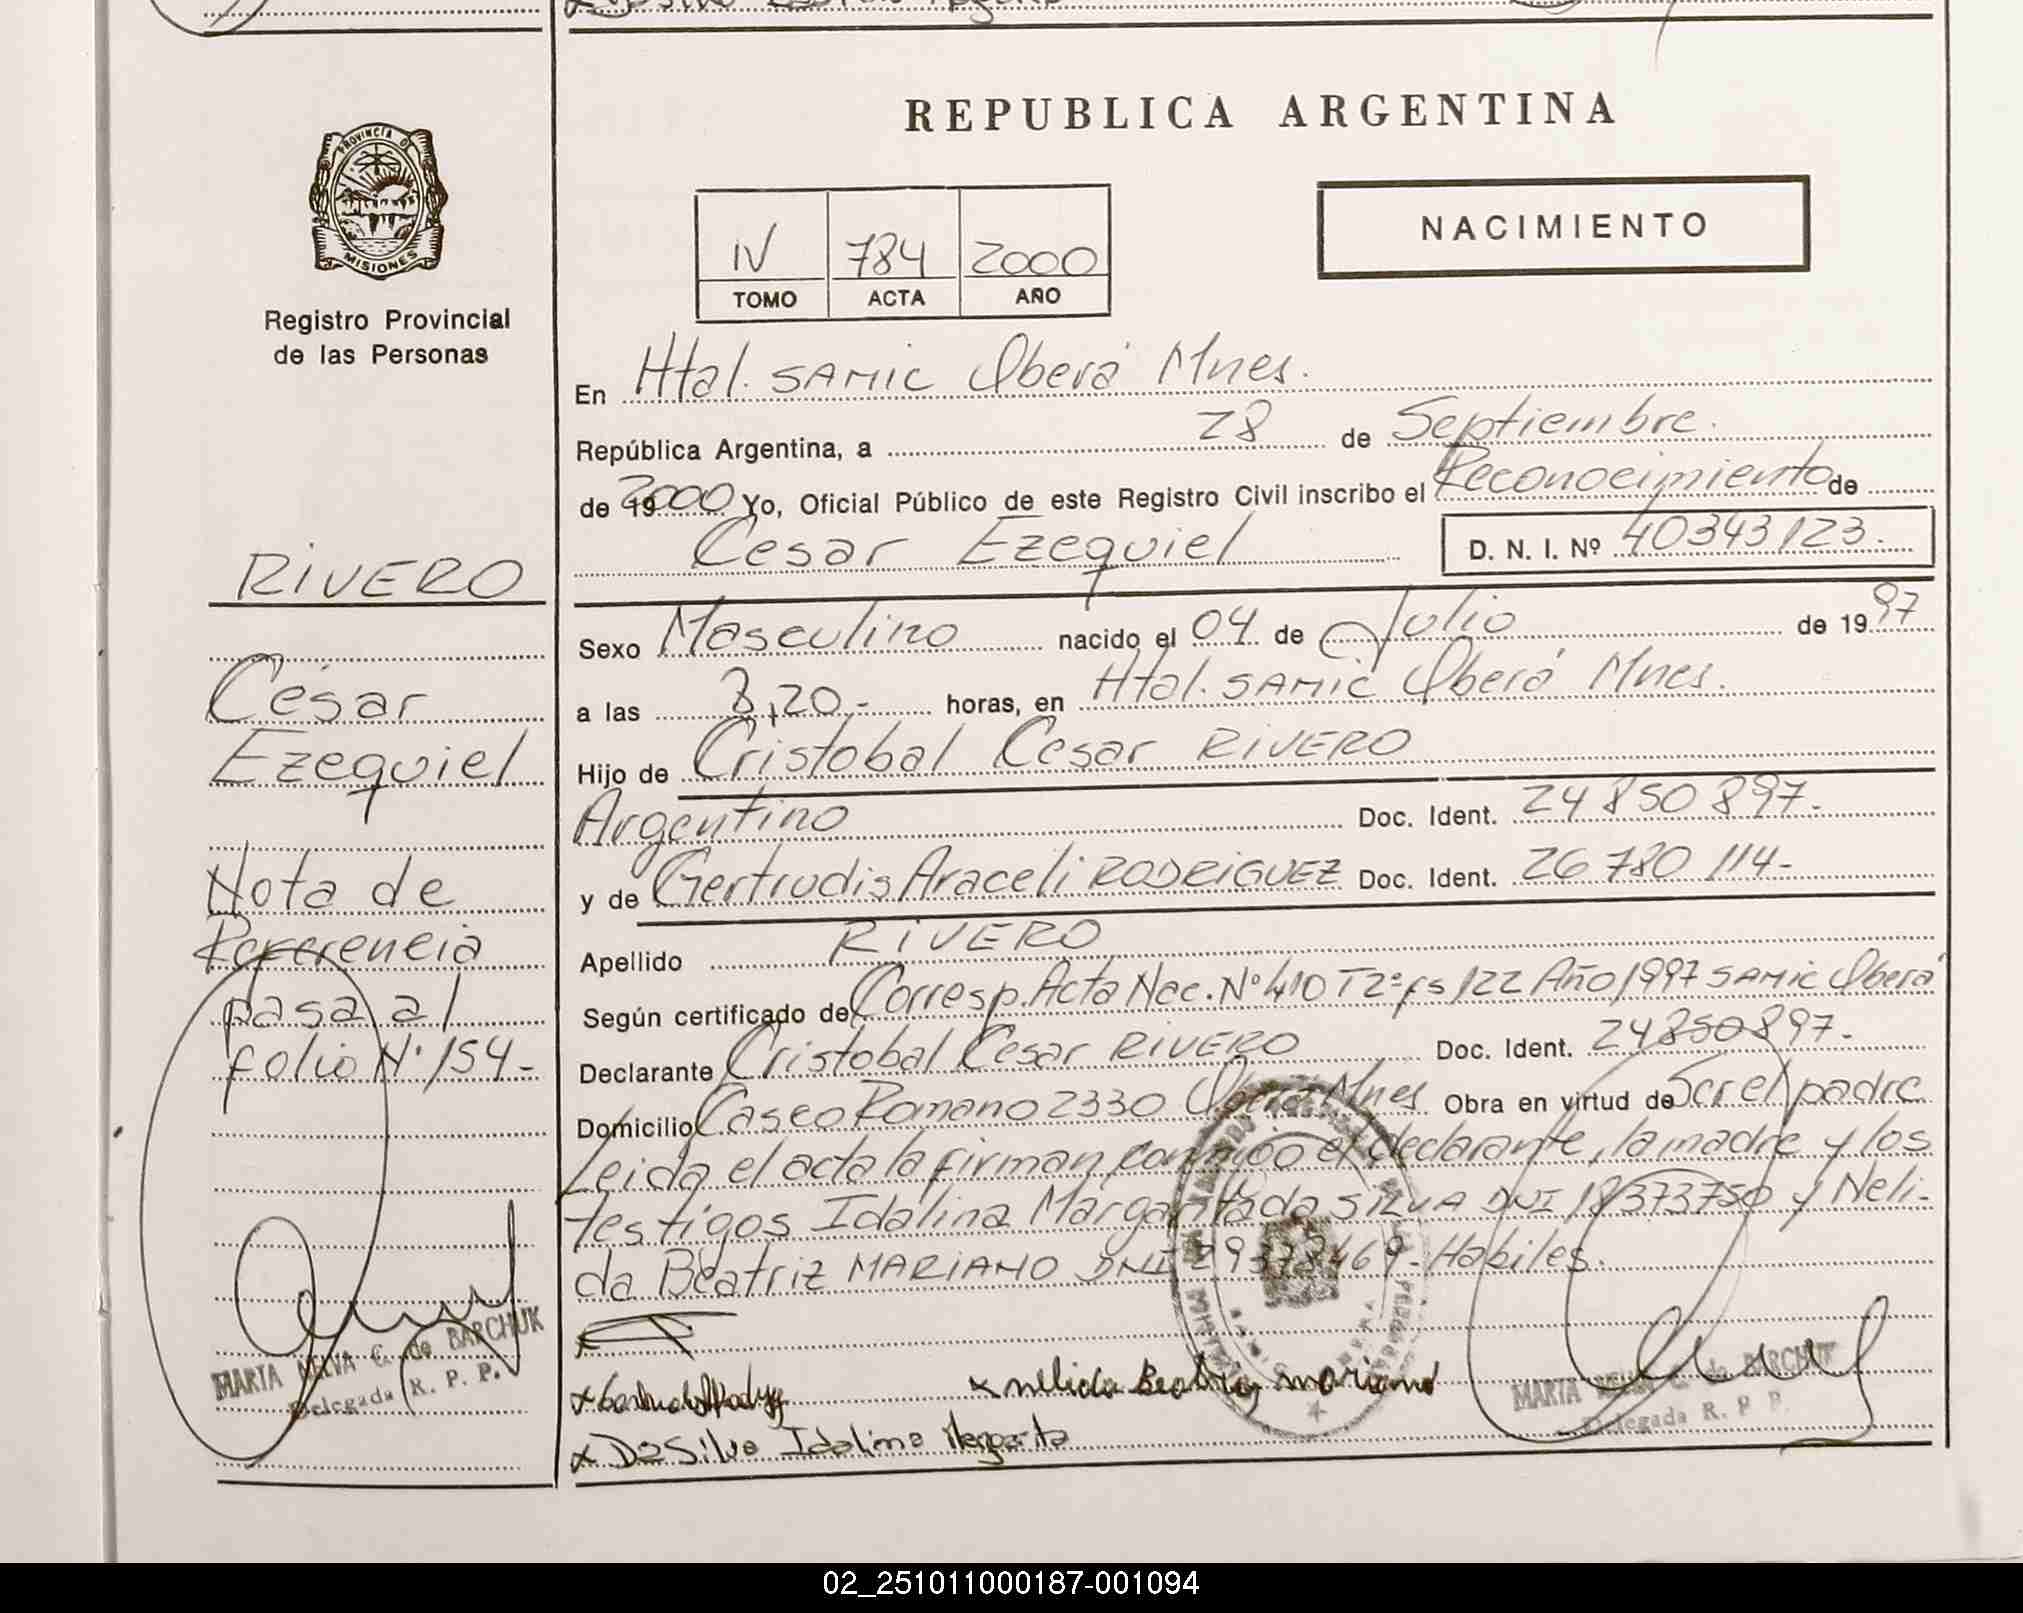 REPUBLICA ARGENTINA
PROVINCIA DE
MISIONES
Registro Provincial
de las Personas
NACIMIENTO
IV 784 2000
TOMO ACTA AÑO
En Htal. SAMIC Oberá Mnes.
República Argentina, a 28 de Septiembre.
de 19 2000 Yo, Oficial Público de este Registro Civil inscribo el Reconocimiento de
Cesar Ezequiel D. N. I. Nº 40343123.
RIVERO
César
Ezequiel
Nota de
Referencia
pasa al
folio Nº 154-
MARTA NELVA C. de BARCHUK
Delegada R. P. P.
Sexo Masculino nacido el 04 de Julio de 1997
a las 8,20,- horas, en Htal. SAMIC Oberá Mnes.
Hijo de Cristobal Cesar RIVERO
Argentino Doc. Ident. 24 850 897-
y de Gertrudis Araceli RODRIGUEZ Doc. Ident. 26 780 114-
Apellido RIVERO
Según certificado de Corresp. Acta Nac. Nº 410 T2º fs 122 Año 1997 SAMIC Oberá
Declarante Cristobal Cesar RIVERO Doc. Ident. 24850897-
Domicilio Caseo Romano 2330 Oberá Mnes Obra en virtud de Ser el padre
Leida el acta la firman conmigo el declarante, la madre y los
testigos Idalina Margarita da SILVA DNI 18373750 y Neli-
da Beatriz MARIANO DNI 29378469- Habiles.
x nelida Beatriz mariano
x Da Silva Idalina Margarita
MARTA NELVA C. de BARCHUK
Delegada R. P. P.
02_251011000187-001094